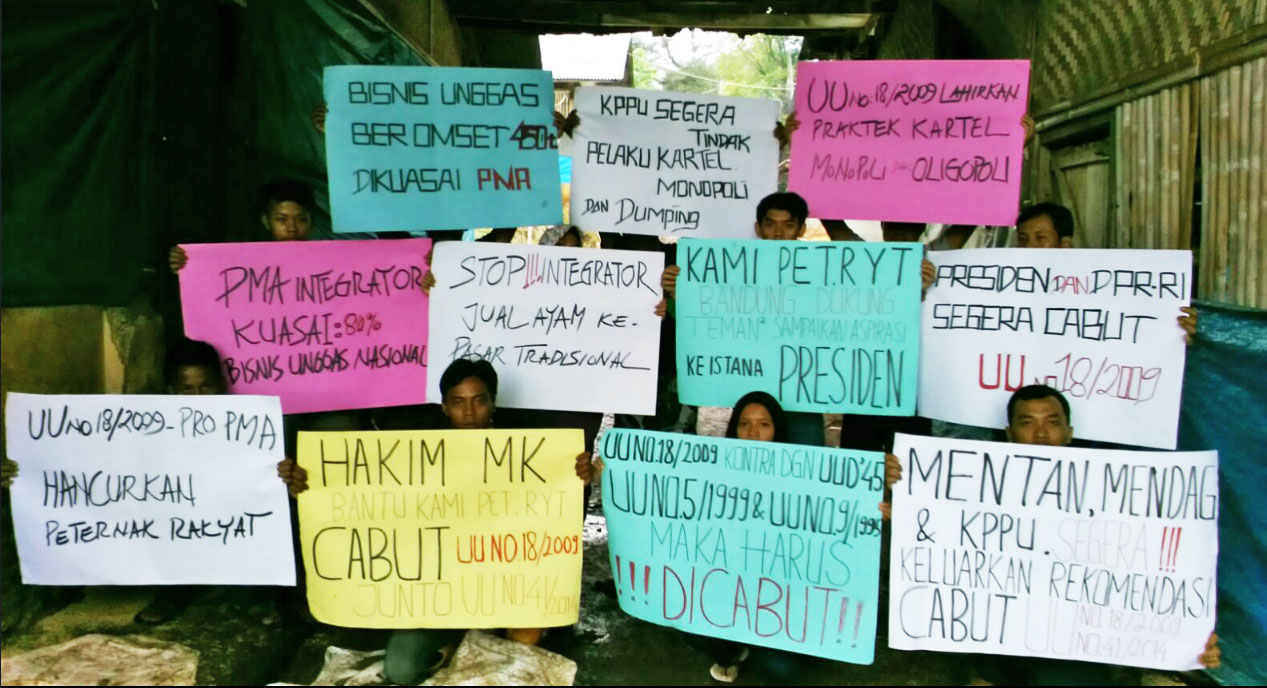 BISNIS UNGGAS
BER OMSET 450t
DIKUASAI PMA
KPPU SEGERA
TINDAK
PELAKU KARTEL
MONOPOLI
DAN DUMPING
UU NO.18/2009 LAHIRKAN
PRAKTEK KARTEL
MONOPOLI DAN OLIGOPOLI
PMA INTEGRATOR
KUASAI: 80%
BISNIS UNGGAS NASIONAL
STOP!!! INTEGRATOR
JUAL AYAM KE-
PASAR TRADISIONAL
KAMI PET.RYT
BANDUNG DUKUNG
TEMAN² SAMPAIKAN ASPIRASI
KE ISTANA PRESIDEN
PRESIDEN DAN DPR-RI
SEGERA CABUT
UU NO 18/2009
UU NO 18/2009-PRO PMA
HANCURKAN
PETERNAK RAKYAT
HAKIM MK
BANTU KAMI PET. RYT
CABUT UU NO.18/2009
JUNTO UU NO 41/2014
UU NO.18/2009 KONTRA DGN UUD'45
UU NO.5/1999 & UU NO.9/1995
MAKA HARUS
!!! DICABUT !!
MENTAN, MENDAG
& KPPU. SEGERA !!!
KELUARKAN REKOMENDASI
CABUT UU NO.18/2009
NO.41/2014